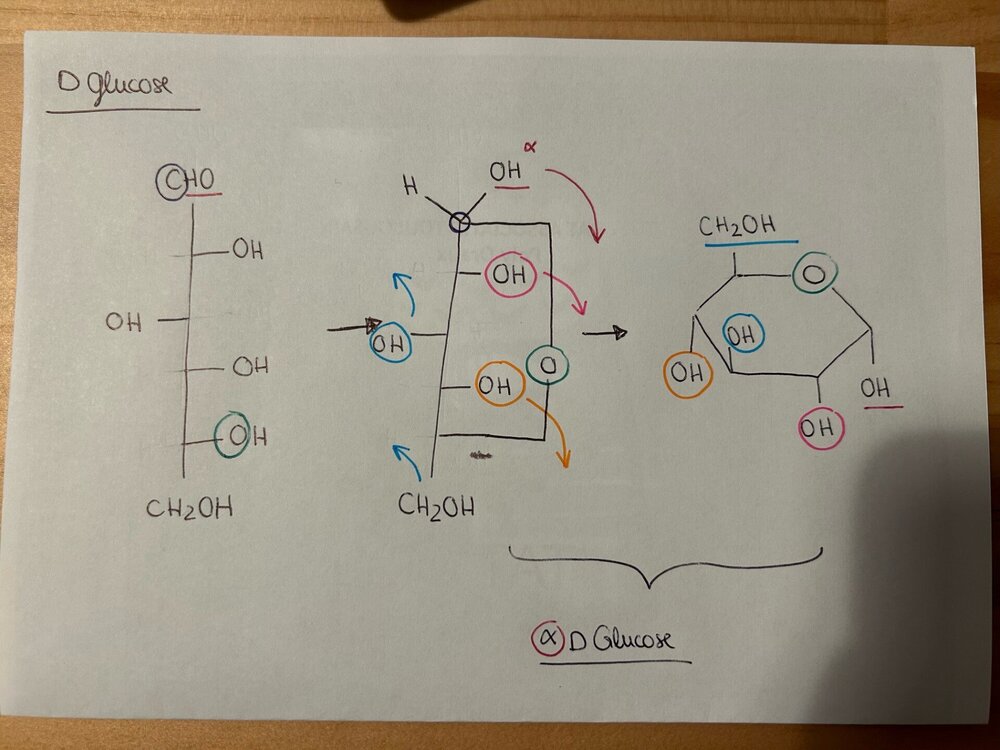 D glucose
CHO
OH
OH
OH
OH
CH2OH
α
H OH
OH
OH
OH
O
CH2OH
CH2OH
O
OH
OH
OH
OH
α D Glucose